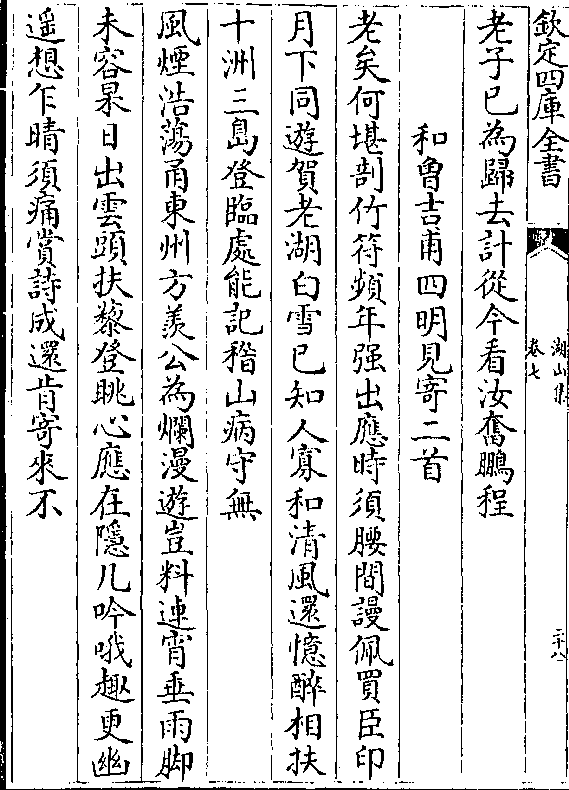 欽定四庫全書
湖山集
卷七
二十八
老子已為歸去計從今看汝奮鵬程
和魯吉甫四明見寄二首
老矣何堪剖竹符頻年强出應時須腰間謾佩買臣印
月下同遊賀老湖白雪已知人寡和清風還憶醉相扶
十洲三島登臨處能記稽山病守無
風煙浩蕩甬東州方羨公為爛漫遊豈料連宵垂雨脚
未容杲日出雲頭扶藜登眺心應在隱几吟哦趣更幽
遥想乍晴須痛賞詩成還肯寄來不